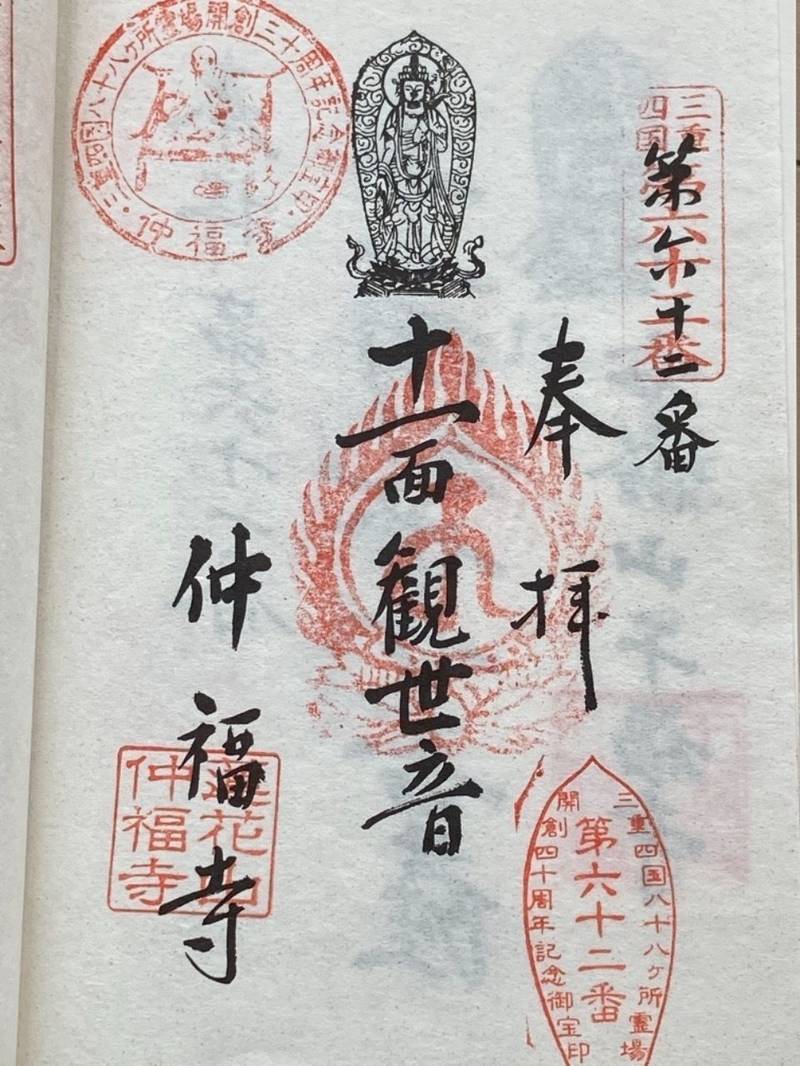 三重
四国
第六十二番
奉拝
十一面観世音
仲福寺
三重四国八十八ヶ所霊場開創三十周年記念御宝印
仲福寺
蓮花山
仲福寺
三重四国八十八ヶ所霊場
第六十二番
開創四十周年記念御宝印